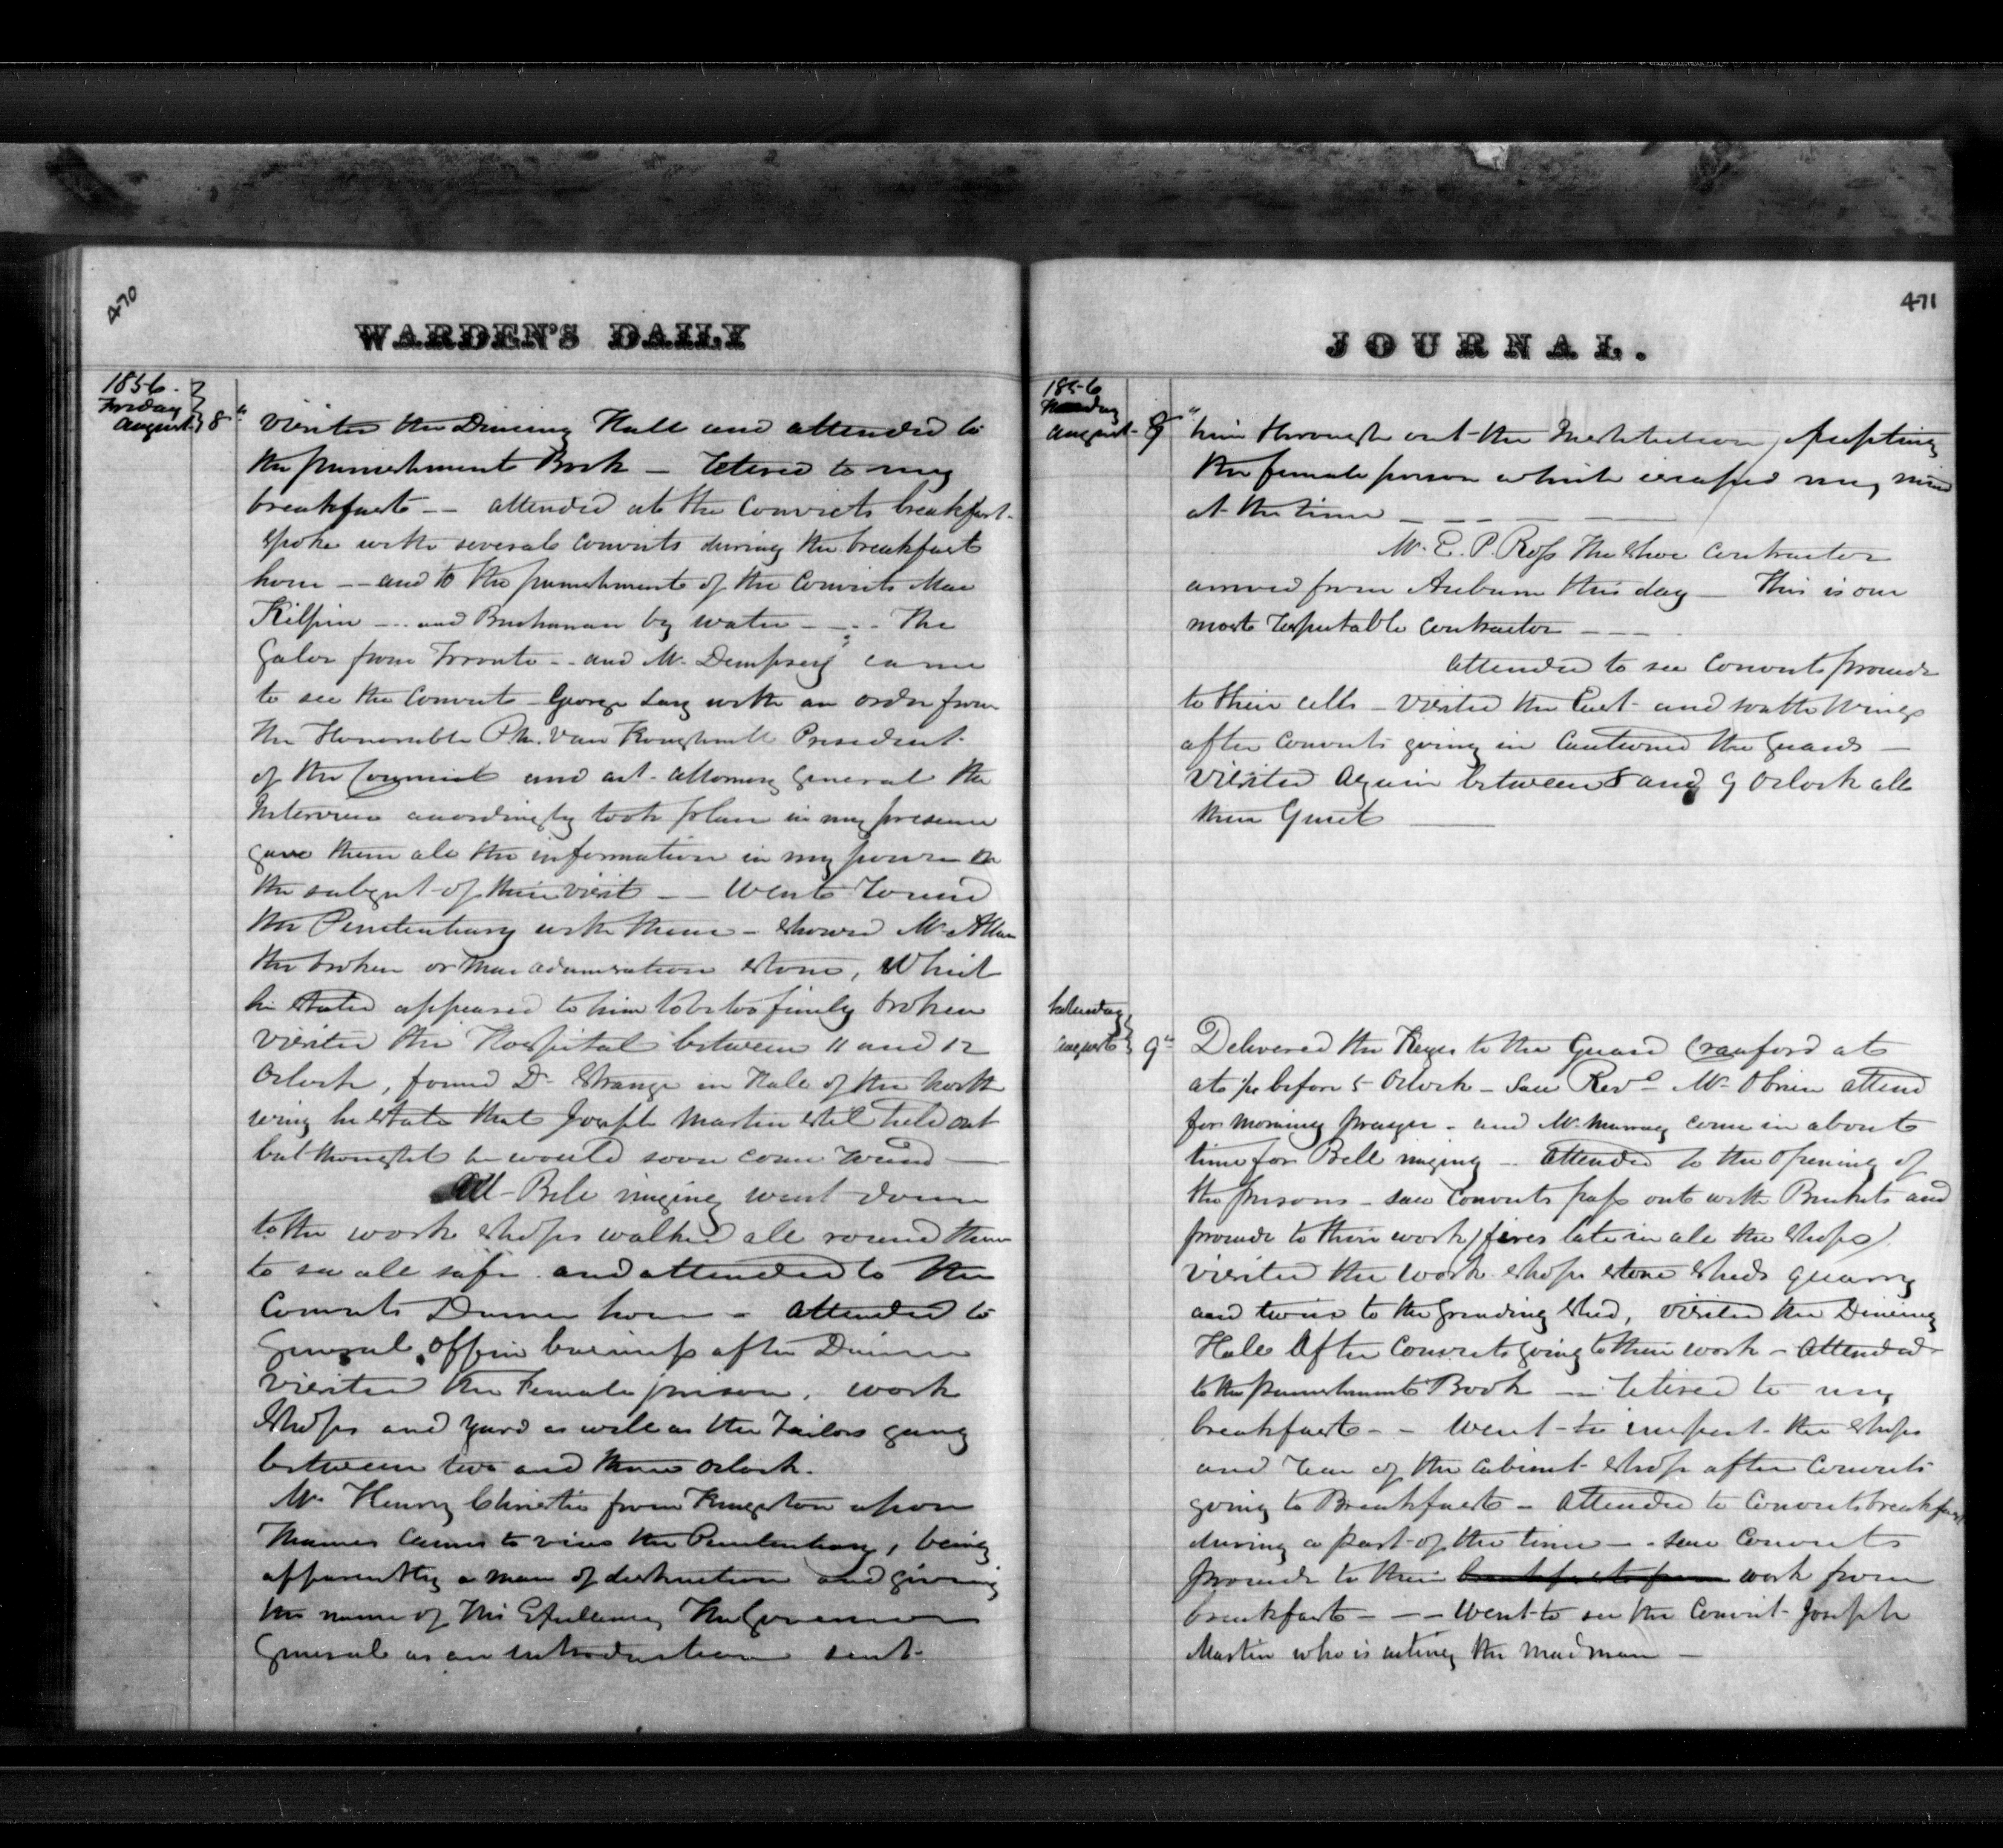 470
WARDEN'S DAILY
1856.
Friday
August 8"
visited the Dining Hall and attended to
the punishment Book — retired to my
breakfast -- attended at the Convicts breakfast.
spoke with several convicts during the breakfast
hour -- and to the punishment of the Convicts Mac
Kilpin -- and Buchanan by water --- The
Galor from Toronto -- and Mr. Dempsey came
to see the Convict George Long with an order from
the Honorable Ph. Van Koughnett President
of the Council and act. attorney General the
Interview accordingly took place in my presence
gave them all the information in my power on
the subject of their visit -- Went round
the Penitentiary with them - showed Mr Allen
the broken or macadamisation stone, Which
he stated appeared to him to be too finely broken
visited the Hospital between 11 and 12
Oclock, found Dr Strange in Hall of the North
wing he state that Joseph Martin stil held out
but thought he would soon come round —
At Bell ringing went down
to the work shops walked all round them
to see all safe and attended to the
Convicts Dinner hour - attended to
General office business after Dinner
visited the Female prison, work
shops and yard as well as the Tailors gang
between two and three oclock.
Mr Henry Christie from Kingston upon
Thames came to view the Penitentiary, being
apparently a man of distinction and giving
the name of His Excellency The Governor
General as an introduction sent
471
JOURNAL.
1856
August 8"
him through out the Institution, Accepting
the female prison which escaped my mind
at the time — — — —
Mr. E. P. Ross the shoe contractor
arrived from Auburn this day — This is our
most respectable contractor ---
attended to see Convicts proceede
to their cells - visited the East and South Wings
after convicts going in Cautioned the Guards —
visited again between 8 and 9 Oclock all
then Quiet —
Saturday
August 9"
Delivered the Keyes to the Guard Crauford at
at 1/4 before 5 Oclock - saw Revd Mr Obrien attend
for morning prayer - and Mr Murray come in about
time for Bell ringing -- attended to the opening of
the prisons - saw convicts pass out with Buckets and
proceede to their work / fires late in all the shops /
visited the work shops stone sheds quarry
and twice to the Grinding shed, visited the Dining
Hall after Convicts going to their work - attended
to the punishment Book -- retired to my
breakfast -- Went to inspect the shops
and rear of the Cabinet shop after Convicts
going to Breakfast - attended to Convicts breakfast
during a part of the time -- saw Convicts
proceede to their breakfast from work from
breakfast --- Went to see the Convict Joseph
Martin who is acting the mad man —